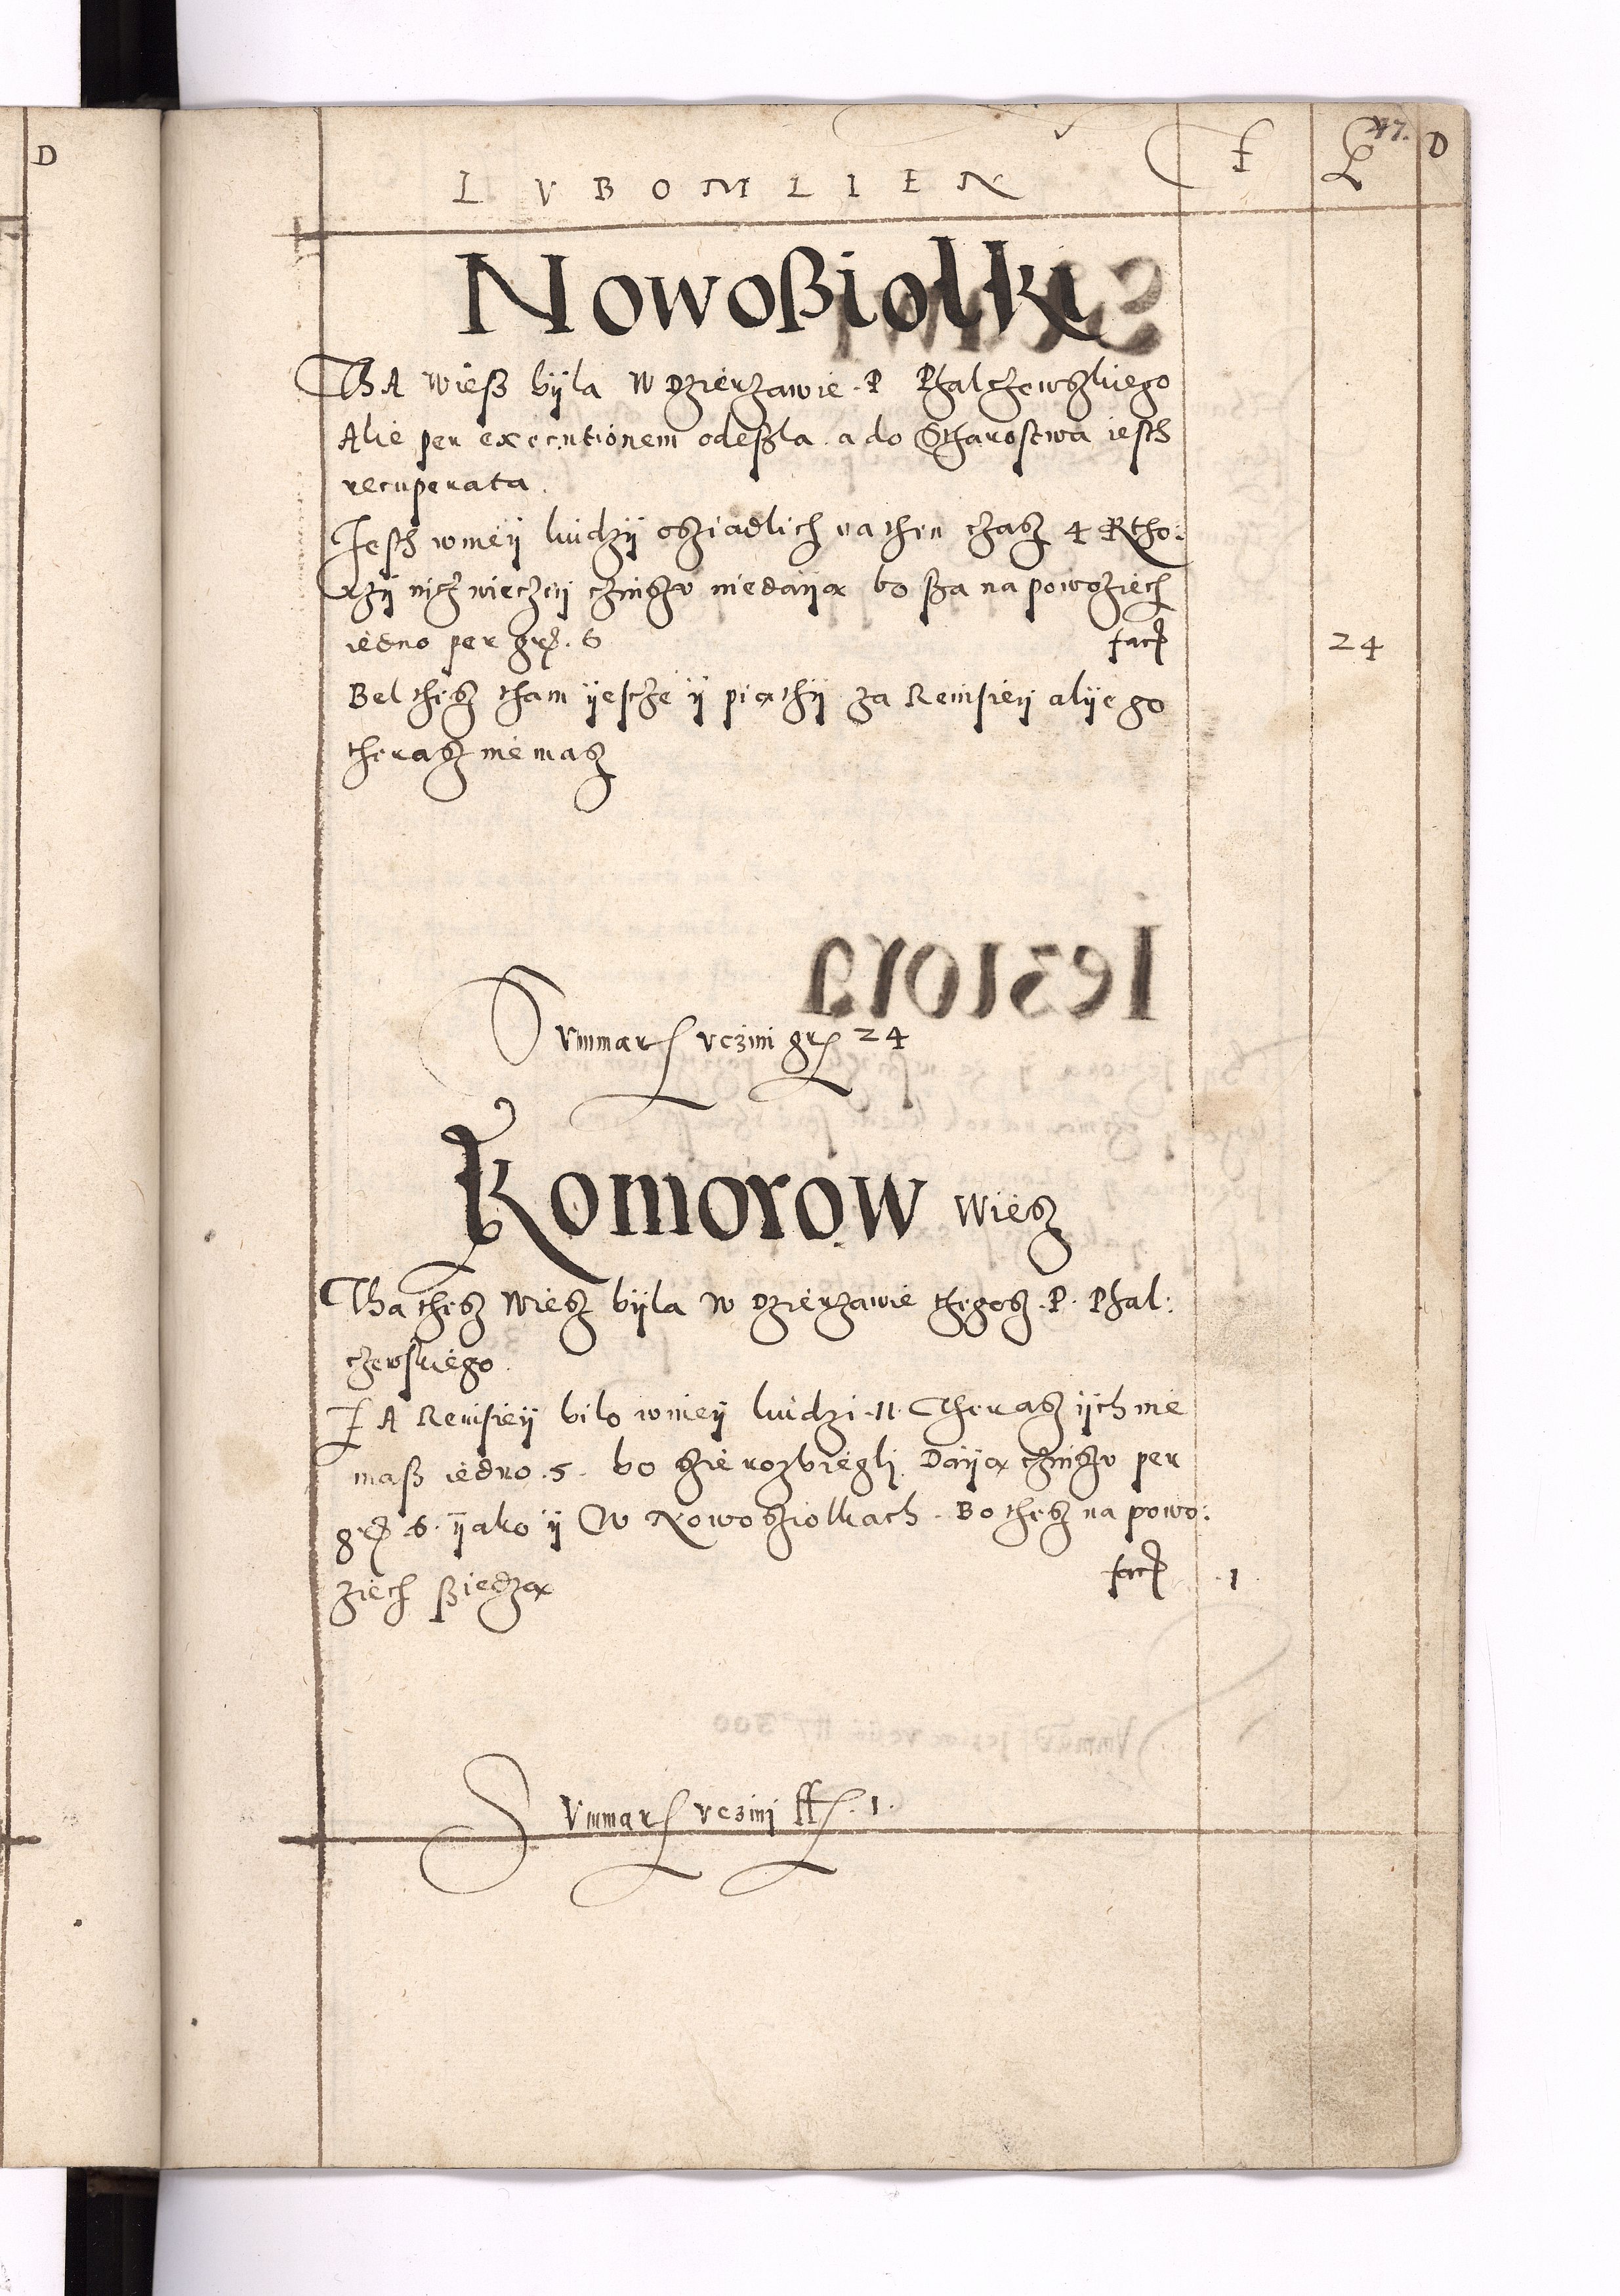 D
47.
L V B O M L I E N
F G D
Nowoßiolki
Tha wieß byla w dzierzawie P Phalczewskiego
Alie per executionem odeszla a do Stharostwa iesth
recuperata.
Iesth wniey ludzy osziadlich na then czasz 4 Ktho:
rzy nicz wieczey czinszv niedayą bo sza na powoziech
iedno per gr. 6 fact 24
Bel thesz tham yescze y piąthy za Rewisiey alye go
therasz niemasz
Summar vczini gr 24
Komorow wiesz
Tha thesz wiesz byla w dzierzawie thegosz P. Phal:
czewskiego.
ZA Rewisiey bilo wniey ludzi 11. Therasz ych nie
maß iedno 5. bo szie rozbiegli. Dayą czinszv per
gr 6. yako y w Nowosziolkach. Bo thesz na powo:
ziech ßiedzą fact 1
Summar vczini ff. 1.